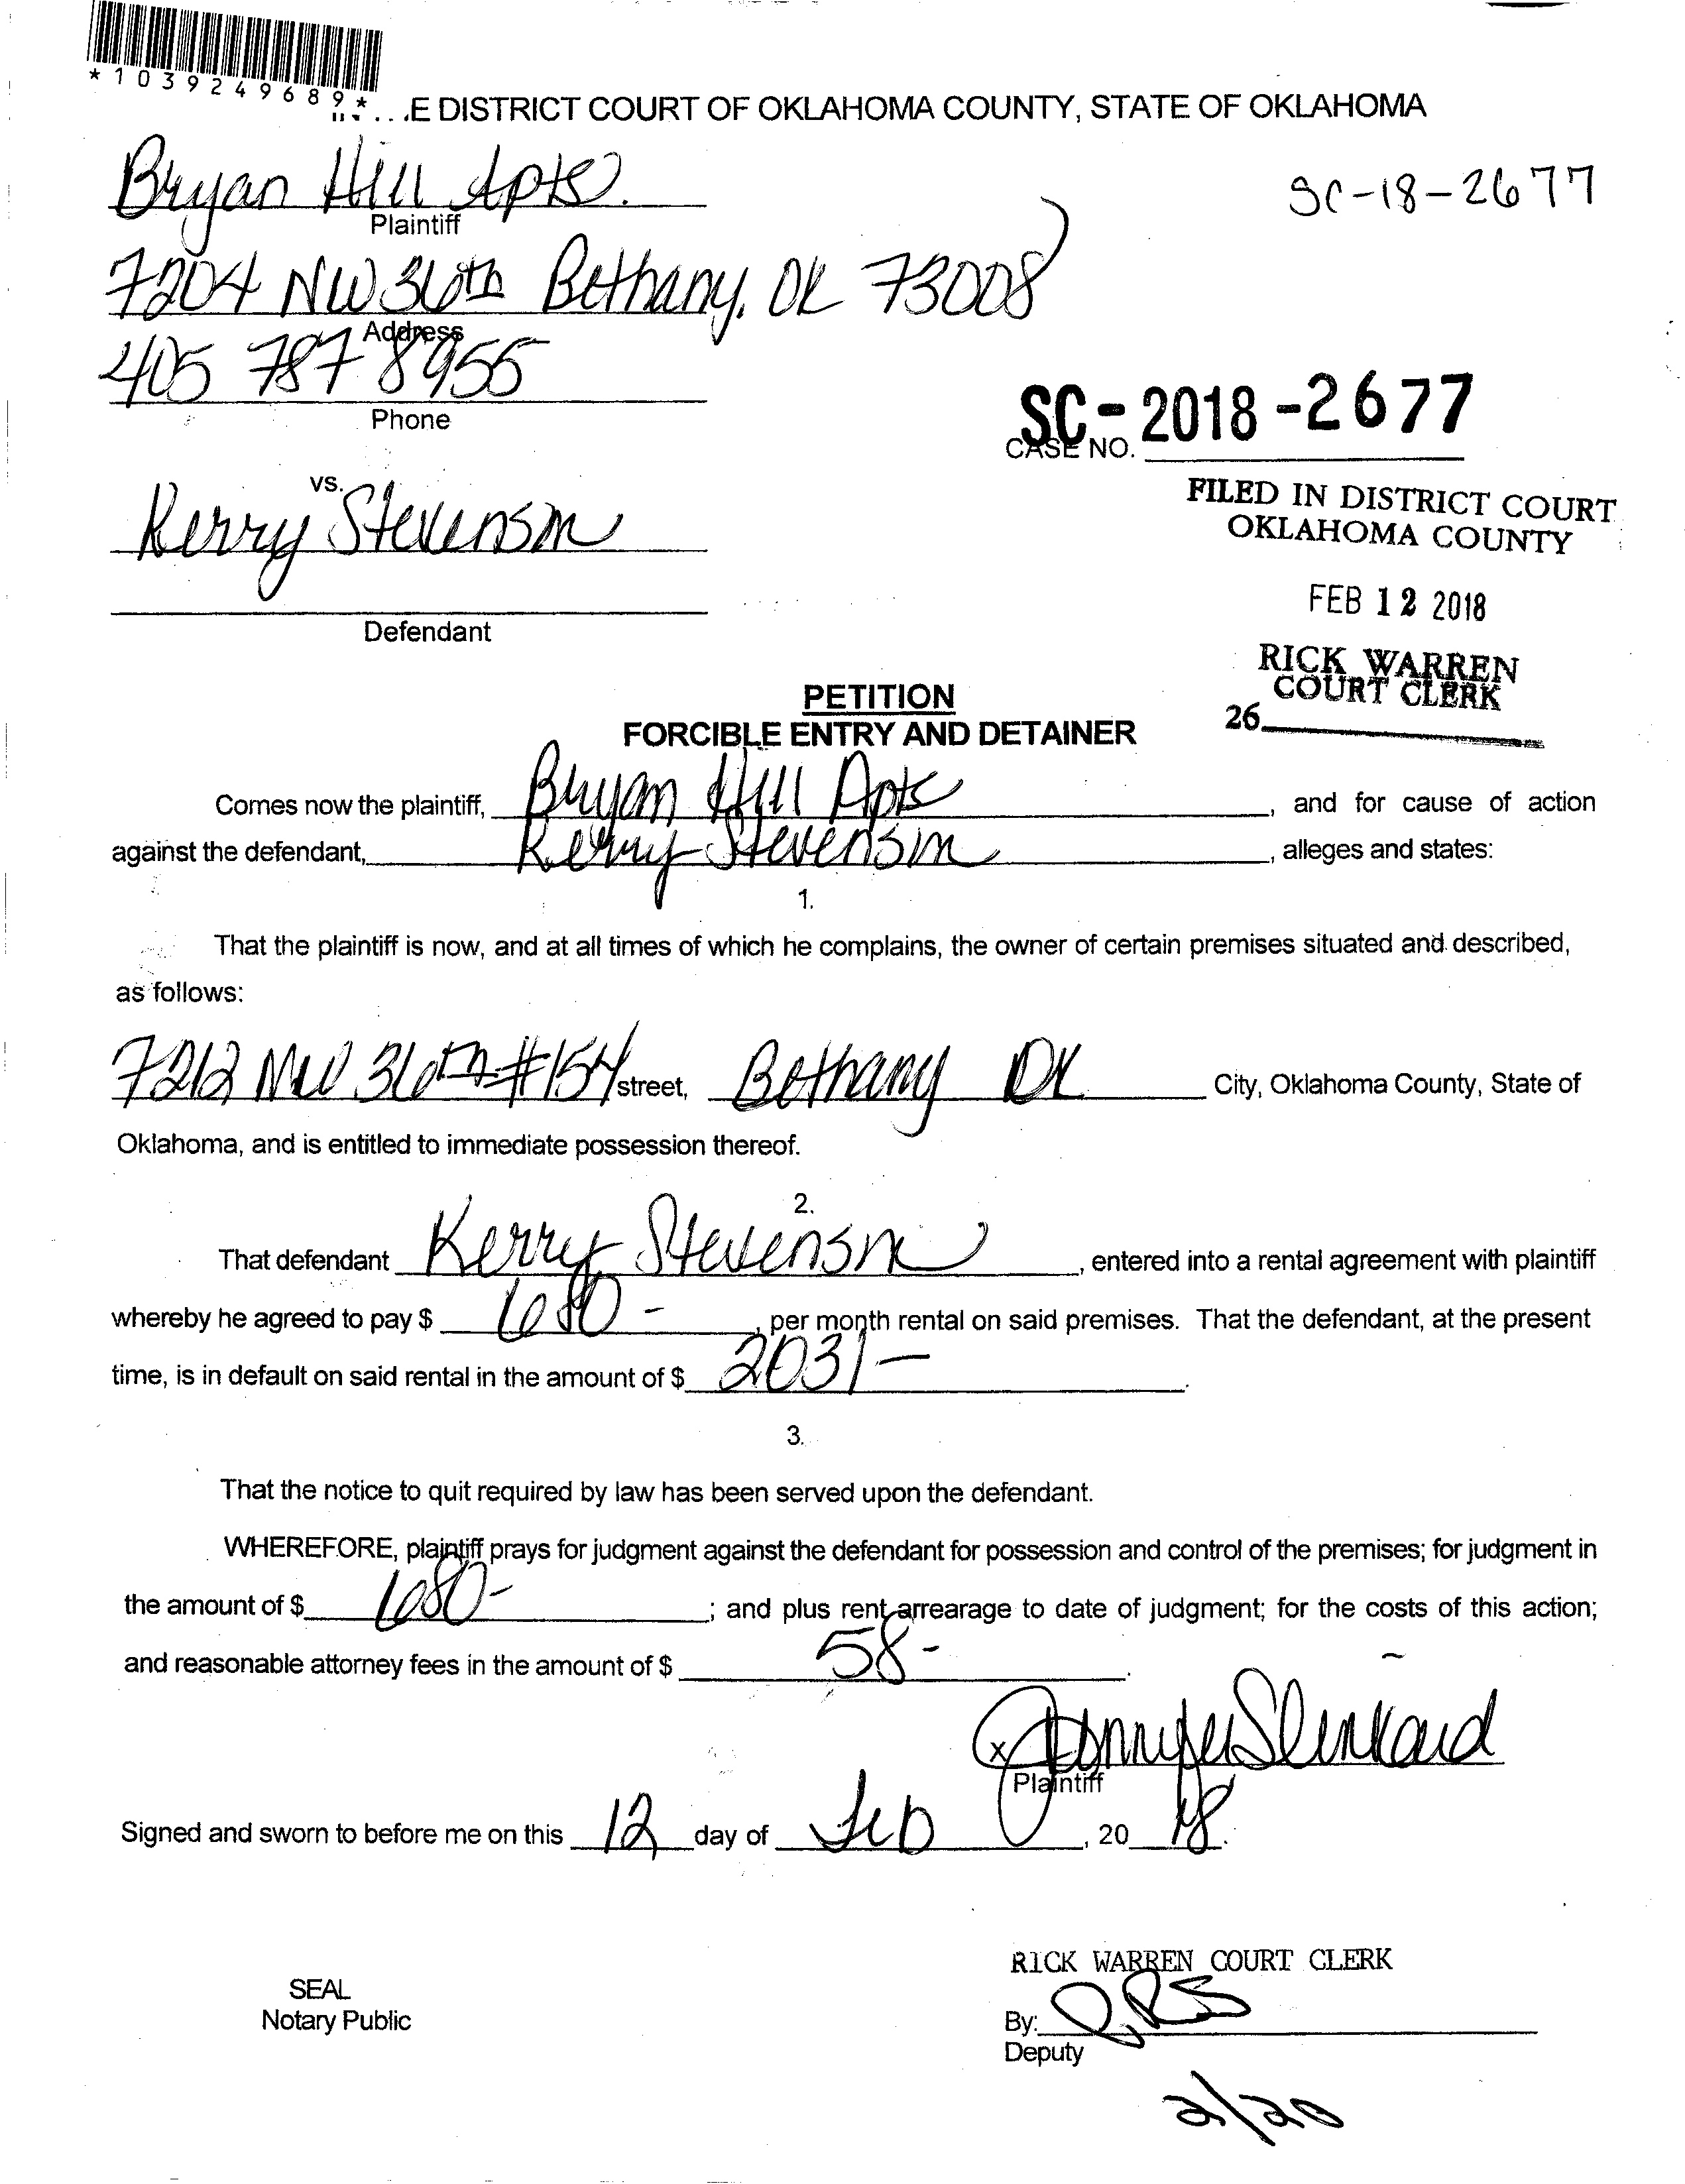 *1039249689*
.E DISTRICT COURT OF OKLAHOMA COUNTY, STATE OF OKLAHOMA
Bryan Hill Apts.
SC-18-2677
Plaintiff
7204 NW 36th Bethany, OK 73008
Address
405 787 8955
Phone
SC-2018-2677
CASE NO.
vs.
Kerry Stevenson
FILED IN DISTRICT COURT
OKLAHOMA COUNTY
FEB 12 2018
Defendant
RICK WARREN
COURT CLERK
26
PETITION
FORCIBLE ENTRY AND DETAINER
Comes now the plaintiff, Bryan Hill Apts, and for cause of action
against the defendant, Kerry Stevenson, alleges and states:
1.
That the plaintiff is now, and at all times of which he complains, the owner of certain premises situated and described,
as follows:
7212 NW 36th #154 street, Bethany OK City, Oklahoma County, State of
Oklahoma, and is entitled to immediate possession thereof.
2.
That defendant Kerry Stevenson, entered into a rental agreement with plaintiff
whereby he agreed to pay $ 680-, per month rental on said premises. That the defendant, at the present
time, is in default on said rental in the amount of $ 2031-.
3.
That the notice to quit required by law has been served upon the defendant.
WHEREFORE, plaintiff prays for judgment against the defendant for possession and control of the premises; for judgment in
the amount of $ 680-; and plus rent arrearage to date of judgment; for the costs of this action;
and reasonable attorney fees in the amount of $ 58-.
x Jennifer Slinkard
Plaintiff
Signed and sworn to before me on this 12 day of Feb, 20 18.
RICK WARREN COURT CLERK
SEAL
Notary Public
By:
Deputy
2/20